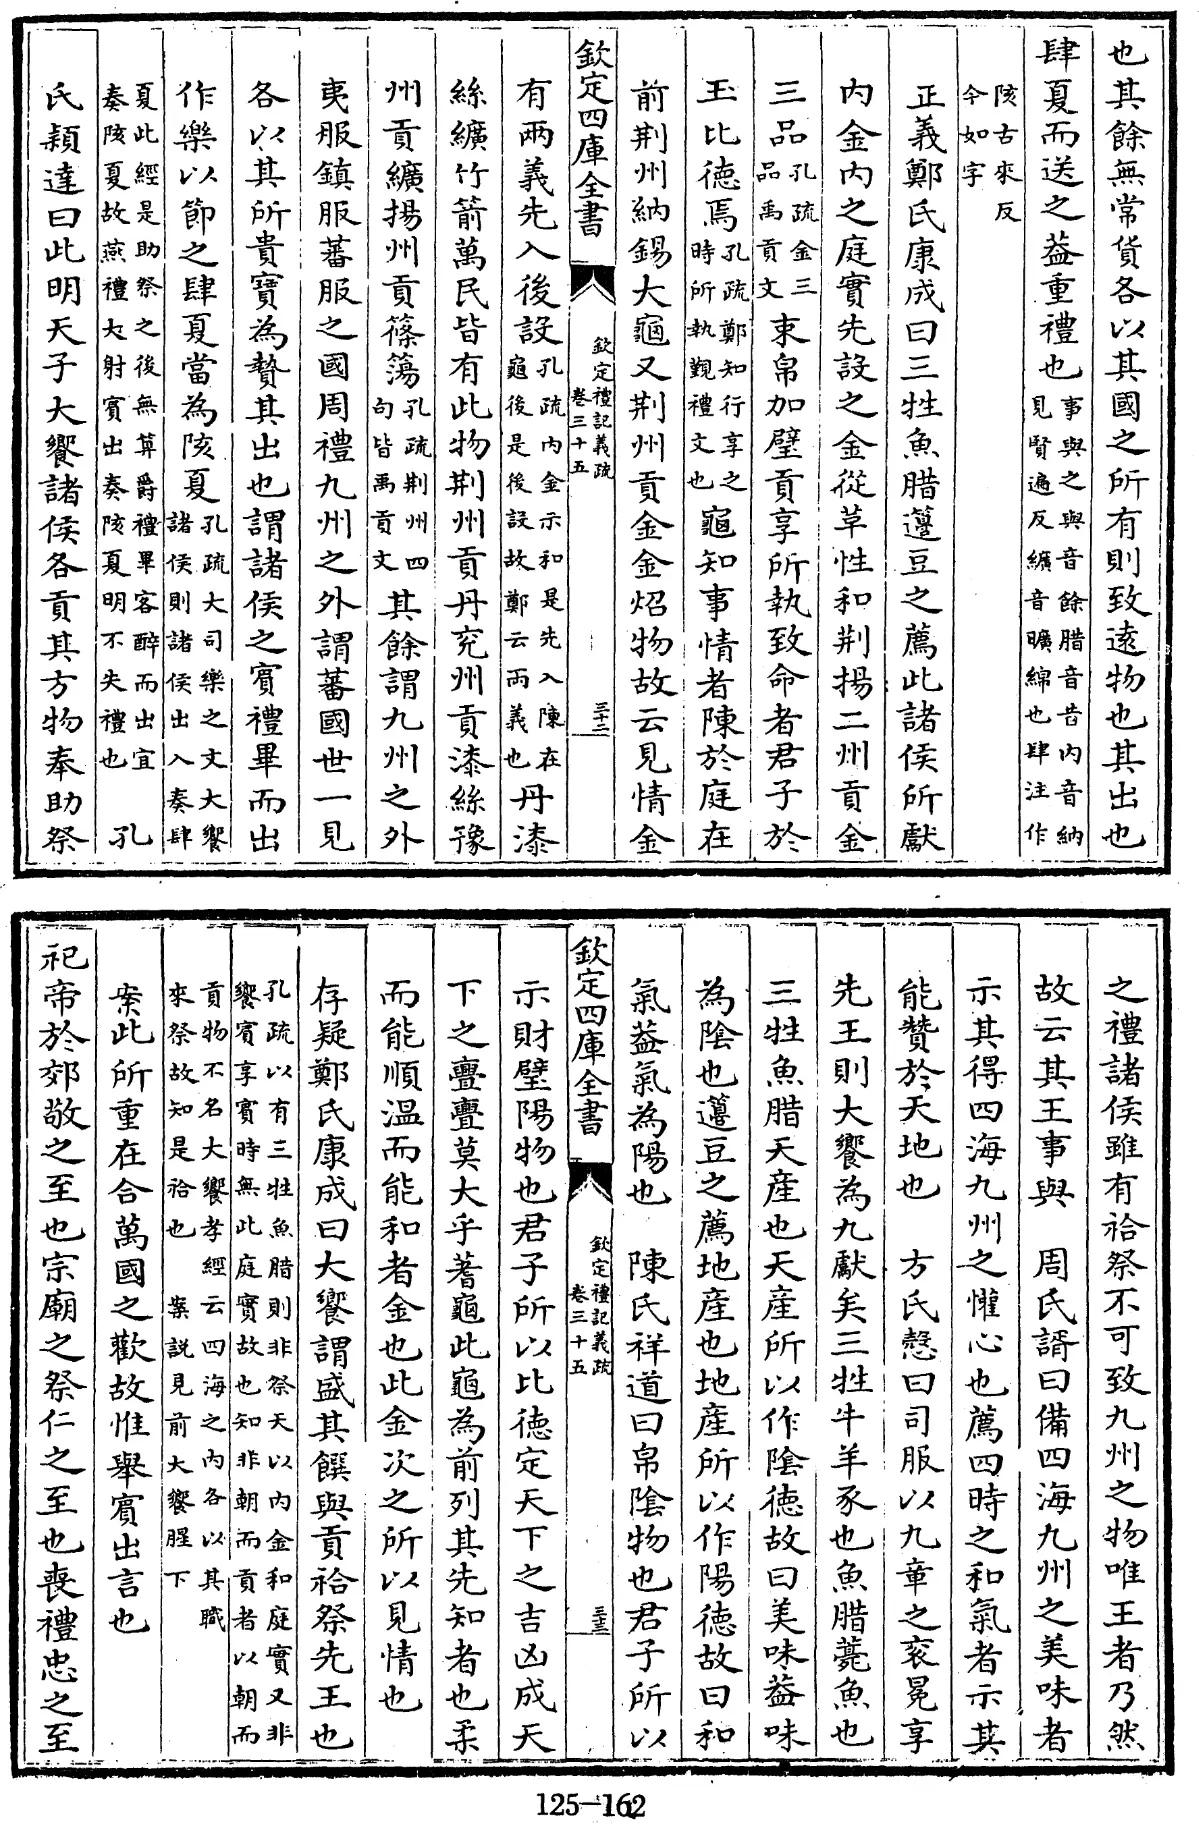 也其餘無常貨各以其國之所有則致遠物也其出也
肆夏而送之葢重禮也事與之與音餘腊音昔内音納見賢遍反纊音曠綿也肆注作
陔古來反今如字
正義鄭氏康成曰三牲魚腊籩豆之薦此諸侯所獻
内金内之庭實先設之金從革性和荆揚二州貢金
三品孔疏金三品禹貢文束帛加璧貢享所執致命者君子於
玉比徳焉孔疏鄭知行享之時所執覲禮文也龜知事情者陳於庭在
前荆州納錫大龜又荆州貢金金炤物故云見情金
欽定四庫全書
欽定禮記義疏
卷三十五
三十二
有兩義先入後設孔疏内金示和是先入陳在龜後是後設故鄭云兩義也丹漆
絲纊竹箭萬民皆有此物荆州貢丹兖州貢漆絲豫
州貢纊揚州貢篠簜孔疏荆州四句皆禹貢文其餘謂九州之外
夷服鎮服蕃服之國周禮九州之外謂蕃國世一見
各以其所貴寶為贄其出也謂諸侯之賓禮畢而出
作樂以節之肆夏當為陔夏孔疏大司樂之文大饗諸侯則諸侯出入奏肆
夏此經是助祭之後無算爵禮畢客醉而出宜奏陔夏故燕禮大射賓出奏陔夏明不失禮也 孔
氏穎達曰此明天子大饗諸侯各貢其方物奉助祭
之禮諸侯雖有祫祭不可致九州之物唯王者乃然
故云其王事與 周氏諝曰備四海九州之美味者
示其得四海九州之懽心也薦四時之和氣者示其
能贊於天地也 方氏慤曰司服以九章之衮冕享
先王則大饗為九獻矣三牲牛羊豕也魚腊薧魚也
三牲魚腊天産也天産所以作陰徳故曰美味葢味
為陰也籩豆之薦地産也地産所以作陽徳故曰和
氣葢氣為陽也 陳氏祥道曰帛陰物也君子所以
欽定四庫全書
欽定禮記義疏
卷三十五
三十三
示財璧陽物也君子所以比徳定天下之吉凶成天
下之亹亹莫大乎蓍龜此龜為前列其先知者也柔
而能順温而能和者金也此金次之所以見情也
存疑鄭氏康成曰大饗謂盛其饌與貢祫祭先王也
孔疏以有三牲魚腊則非祭天以内金和庭實又非饗賓享賓時無此庭實故也知非朝而貢者以朝而
貢物不名大饗孝經云四海之内各以其職來祭故知是祫也 案説見前大饗腥下
案此所重在合萬國之歡故惟舉賓出言也
祀帝於郊敬之至也宗廟之祭仁之至也喪禮忠之至
125-162